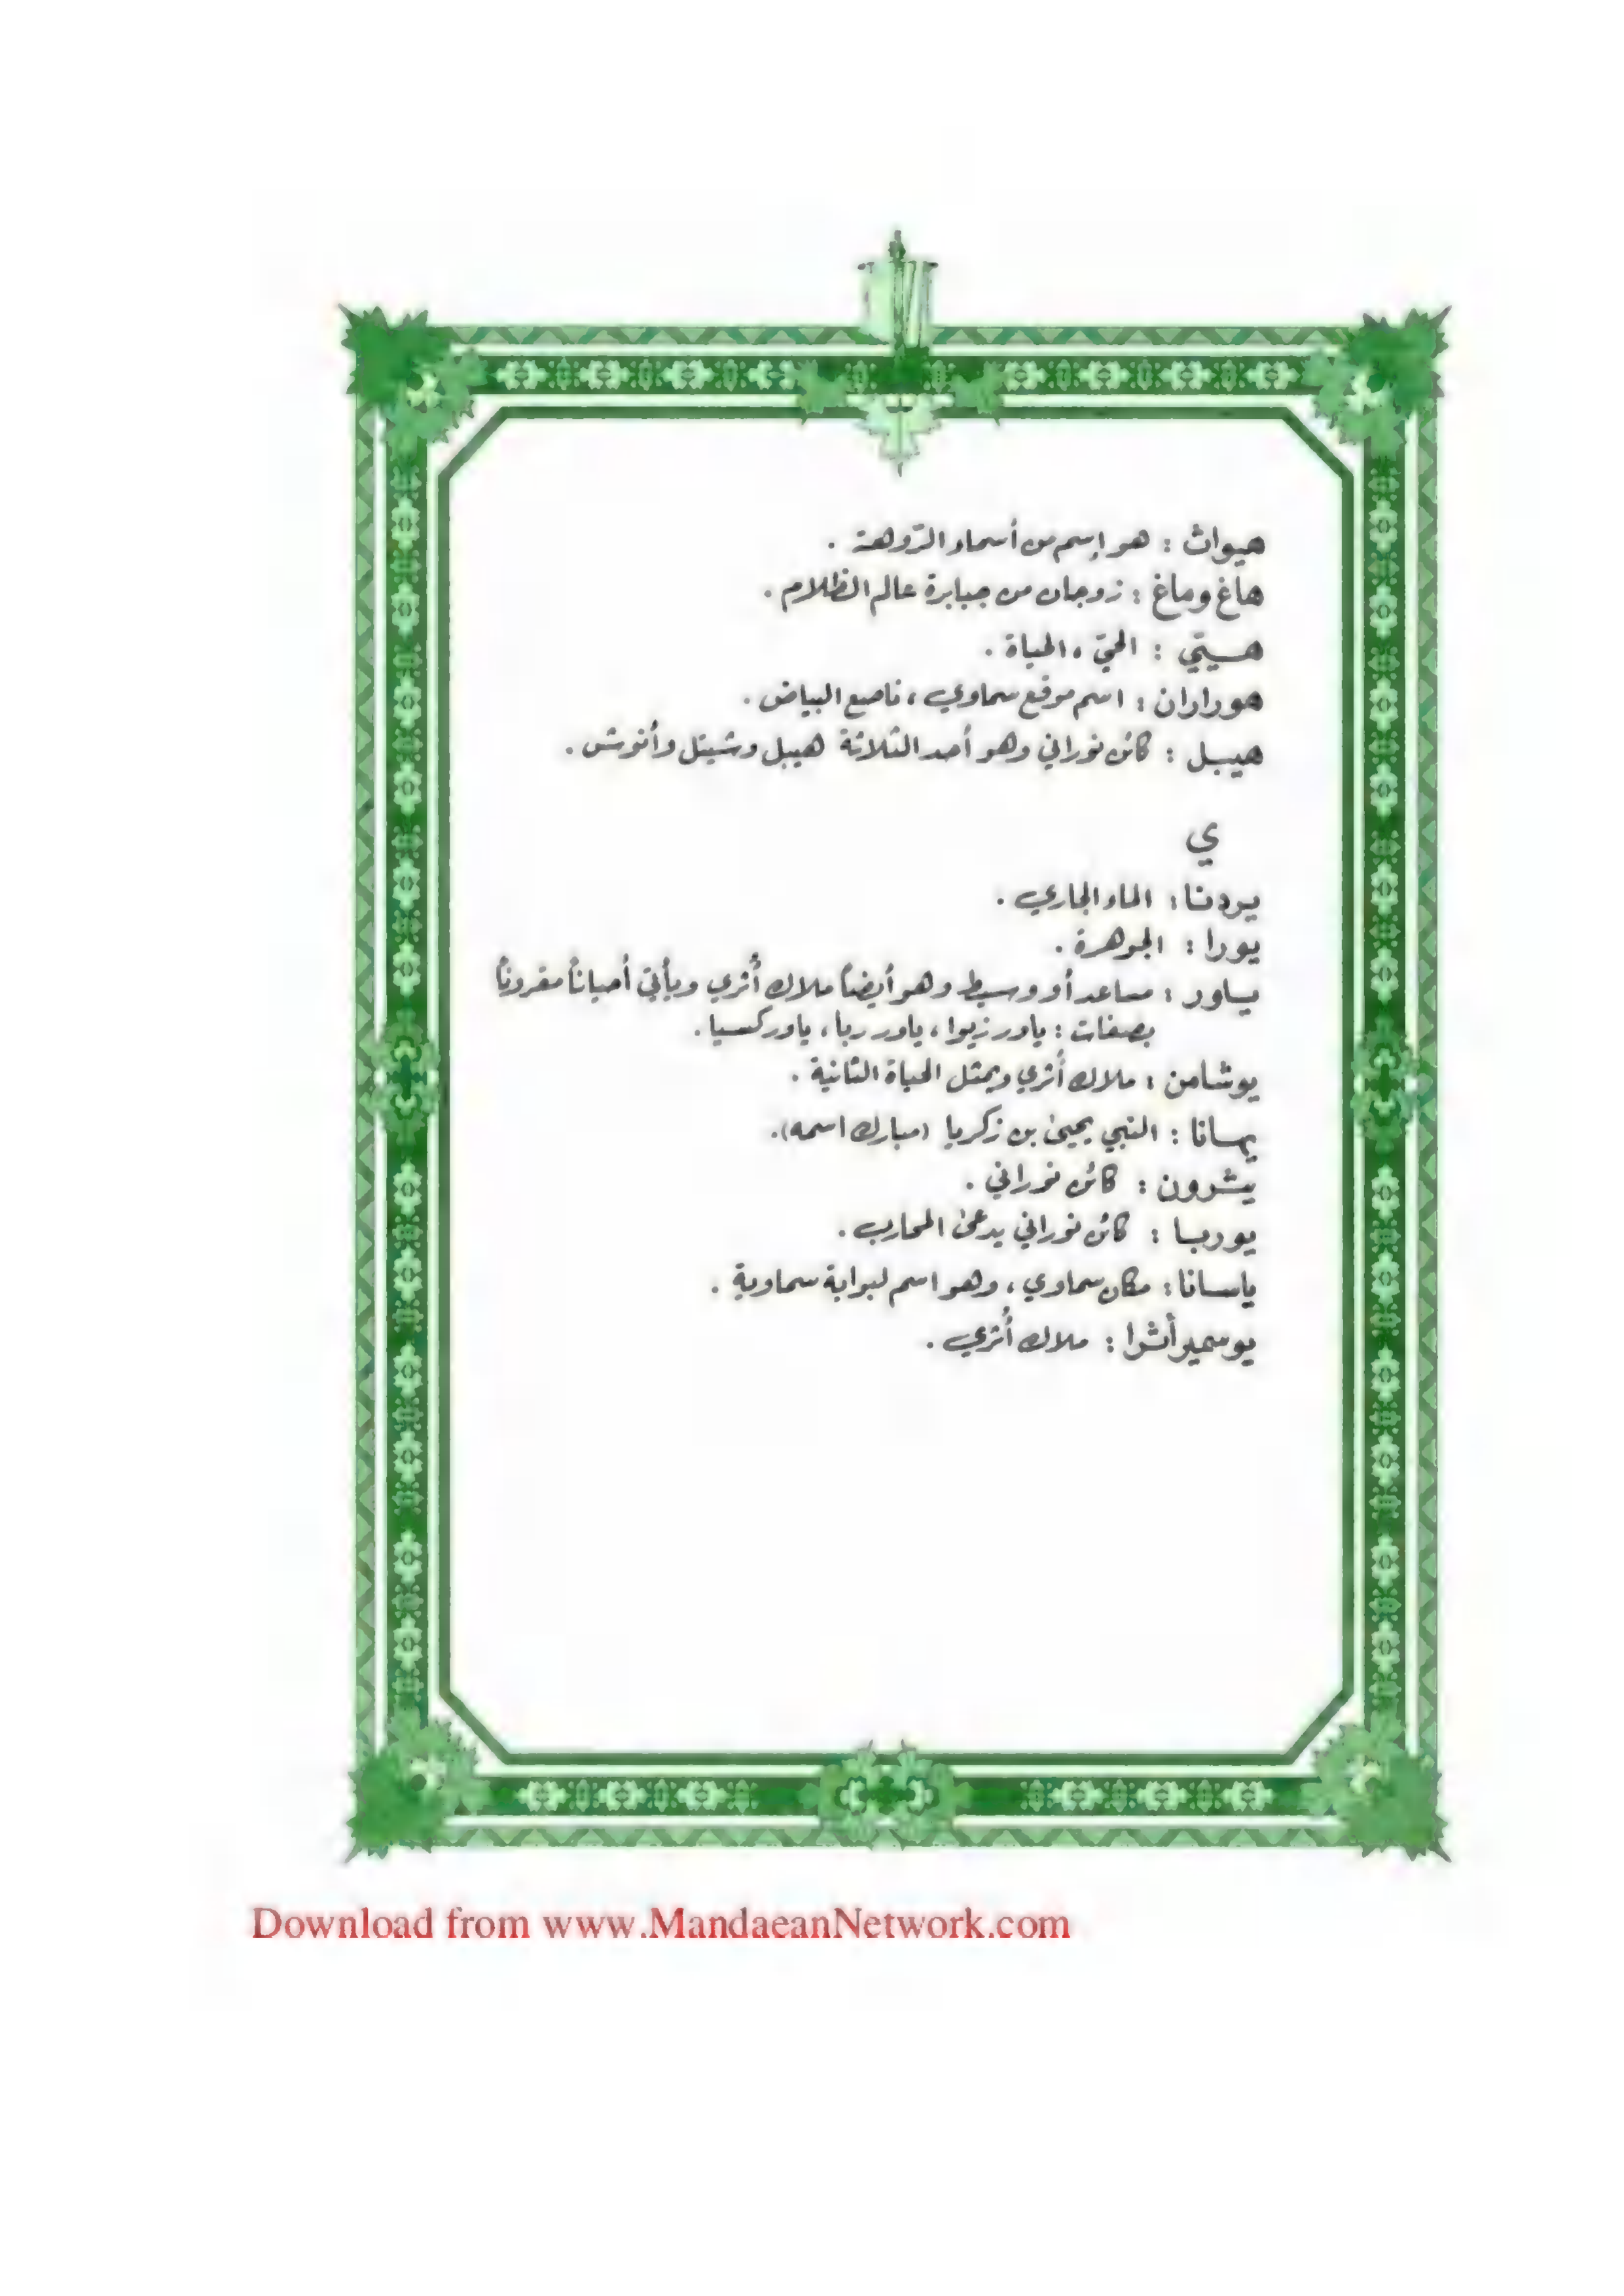 هيواث : هو إسم من أسماء الرّوهة .
هاغ وماغ : زوجان من جبابرة عالم الظلام .
هييّي : الحيّ ، الحياة .
هوراران : اسم موقع سماوي ، ناصع البياض .
هيبل : كائن نوراني وهو أحد الثلاثة هيبل وشيتل وأنوش .
ي
يردنا : الماء الجاري .
يورا : الجوهرة .
ياور : مساعد أو وسيط وهو أيضاً ملاك أُثري ويأتي أحياناً مقروناً
بصفات : ياور زيوا ، ياور ربا ، ياور كسيا .
يوشامن : ملاك أُثري ويمثل الحياة الثانية .
يهانا : النبي يحيىٰ بن زكريا (مبارك اسمه).
يثرون : كائن نوراني .
يوربا : كائن نوراني يدعىٰ المحارب .
ياسانا : مكان سماوي ، وهو اسم لبوابة سماوية .
يوسمير أثرا : ملاك أُثري .
Download from www.MandaeanNetwork.com